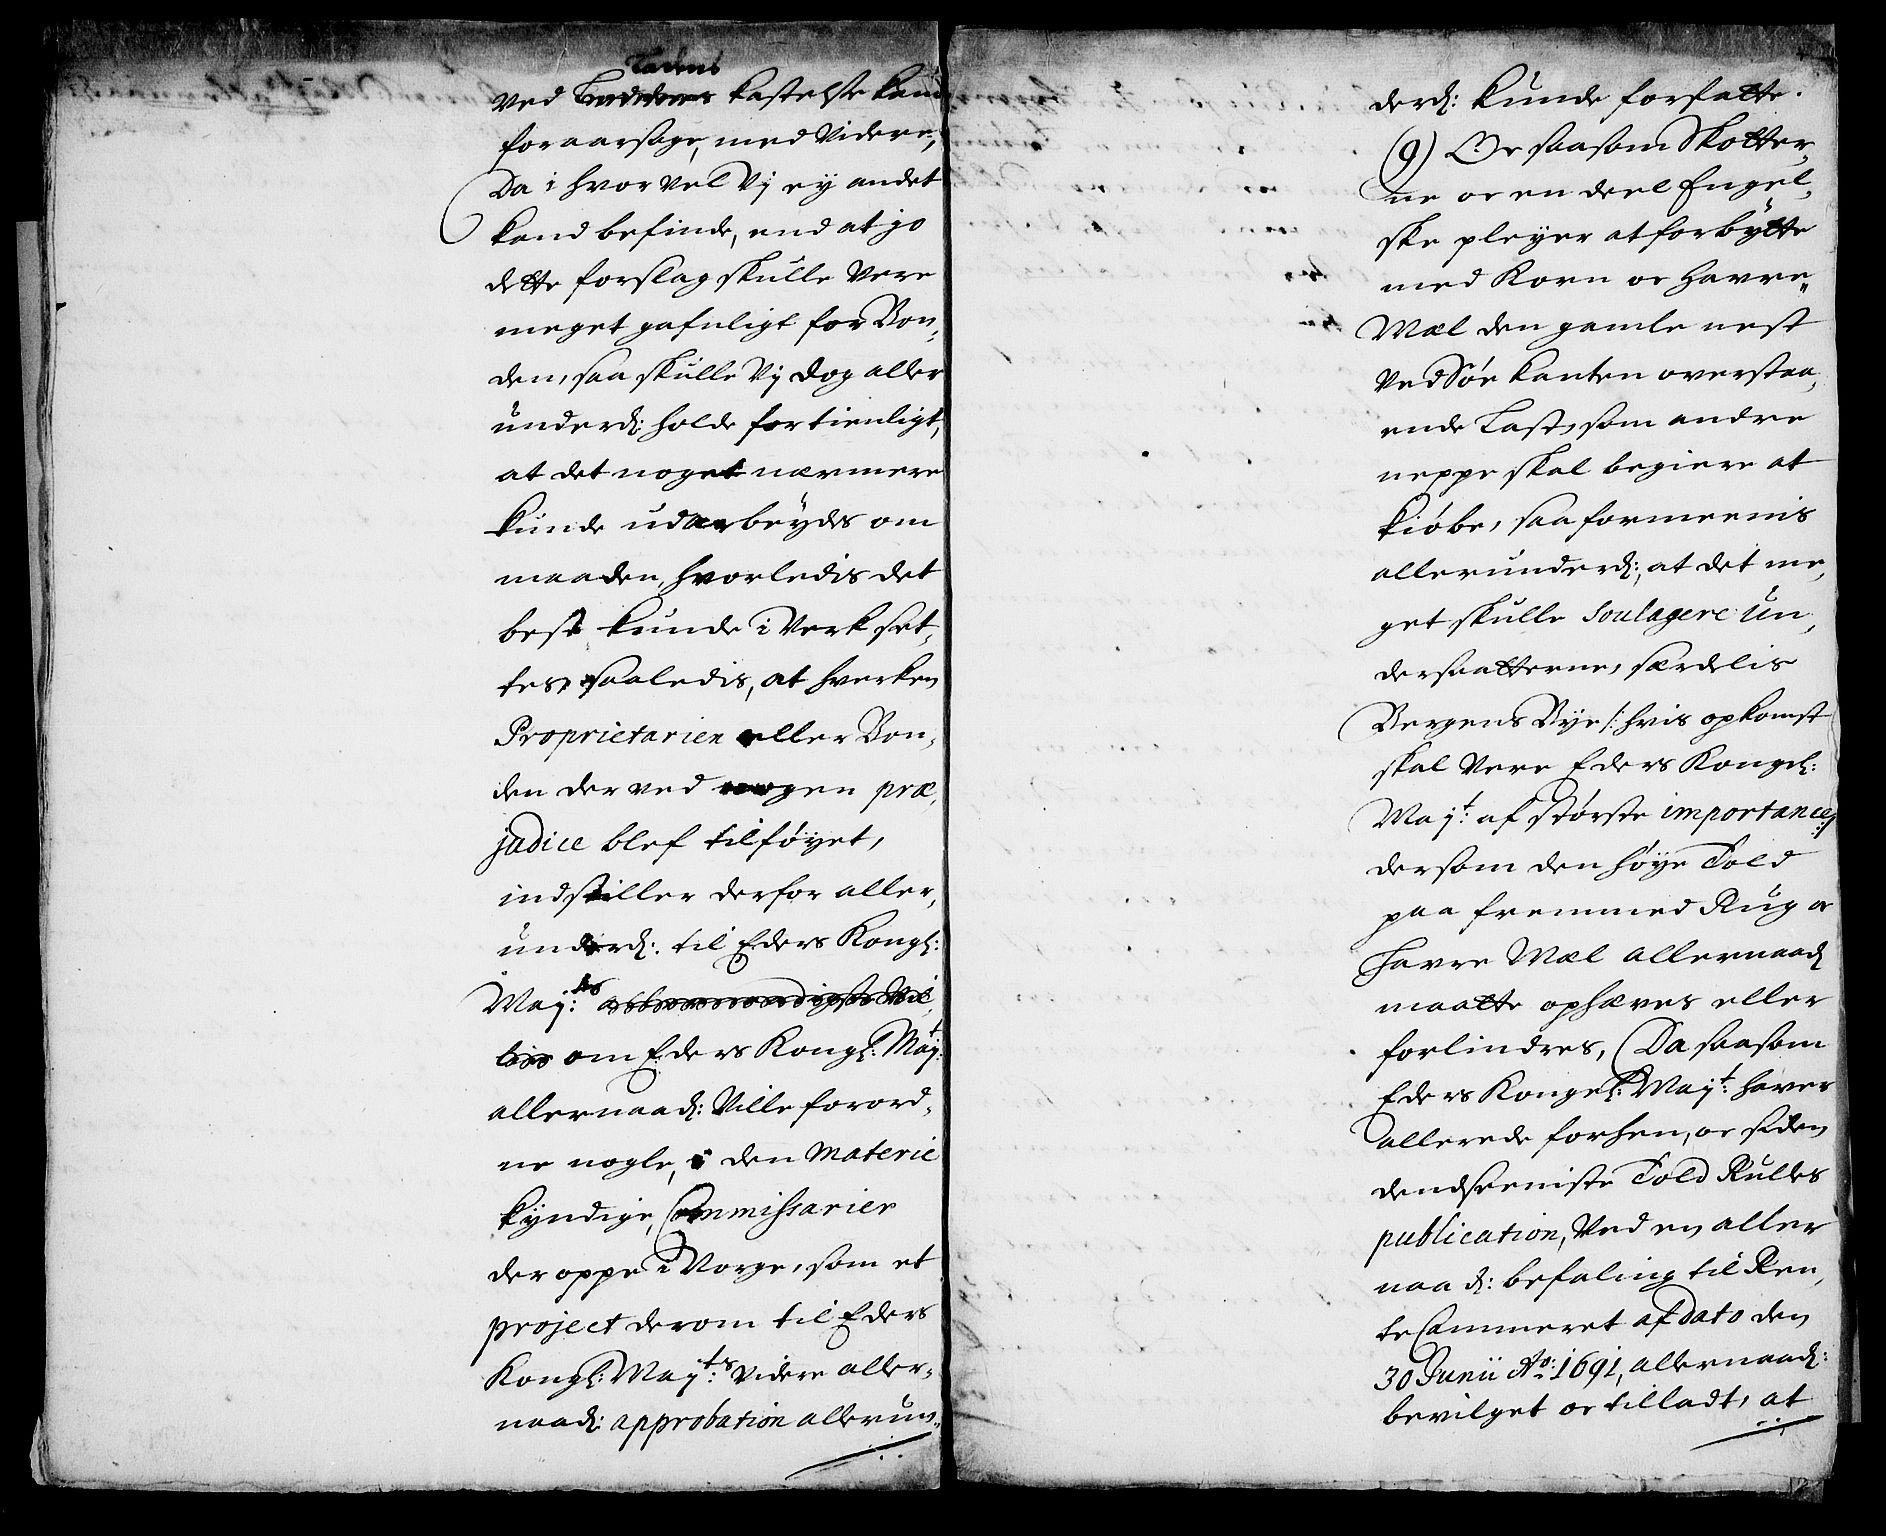 Ladens
ved kastelse kand
foraarsage, med Videre,
Da i hvor vel Vj ey andet
kand befinde, end at jo
dette forslag skulle Vere
meget gafnligt for Bon,
den, saa skulle Vj dog aller
underd: holde fortienligt,
at det noget nærmere
kunde udarbeydes om
maaden, hvorledis det
best kunde i Verk set,
tes, saaledis, at hverken
Proprietarien eller Bon,
den derved nogen præ,
judice blef tilføyet,
indstiller derfor aller,
underd: til Eders Kongl:
May:ts
om Eders Kongl: May:t
allernaad: Ville forord,
ne nogle, i den Materie
kyndige, Commissarier
der oppe i Norge, som et
project derom til Eders
Kongl: May:ts videre aller,
naad: approbation allerun,
derd: kunde forfatte.
(9) Oc saasom Skotter,
ne oc en deel Engel,
ske pleyer at forbytte
med Korn oc Havre,
Mæl den gamle nest
Ved Søe kanten overstaa,
ende Last, som andre
neppe skal begiere at
kiøbe, saa formeenis
allerunderd:, at det me,
get skulle Soulagere Un,
dersaatterne, særdelis
Bergens Bye /: hvis opkomst
skal Vere Eders Kongel:
May:t af største importance :/
dersom den høye Told
paa fremmed Rug oc
Havre Mæl allernaad
maatte ophæves eller
forlindres, Da saasom
Eders Kongel: May:t haver
allerede forhen, oc siden
dend seeniste Told Rulles
publication, Ved en aller
naad: befaling til Ren,
teCammeret af dato den
30 Junii Ao: 1691, allernaad:
bevilget oc tilladt, at